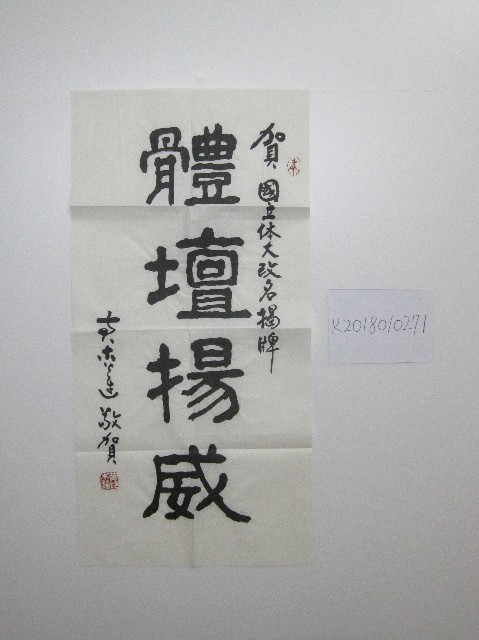 賀 國立体大改名揭牌
體壇揚威
敬賀
K2018010271